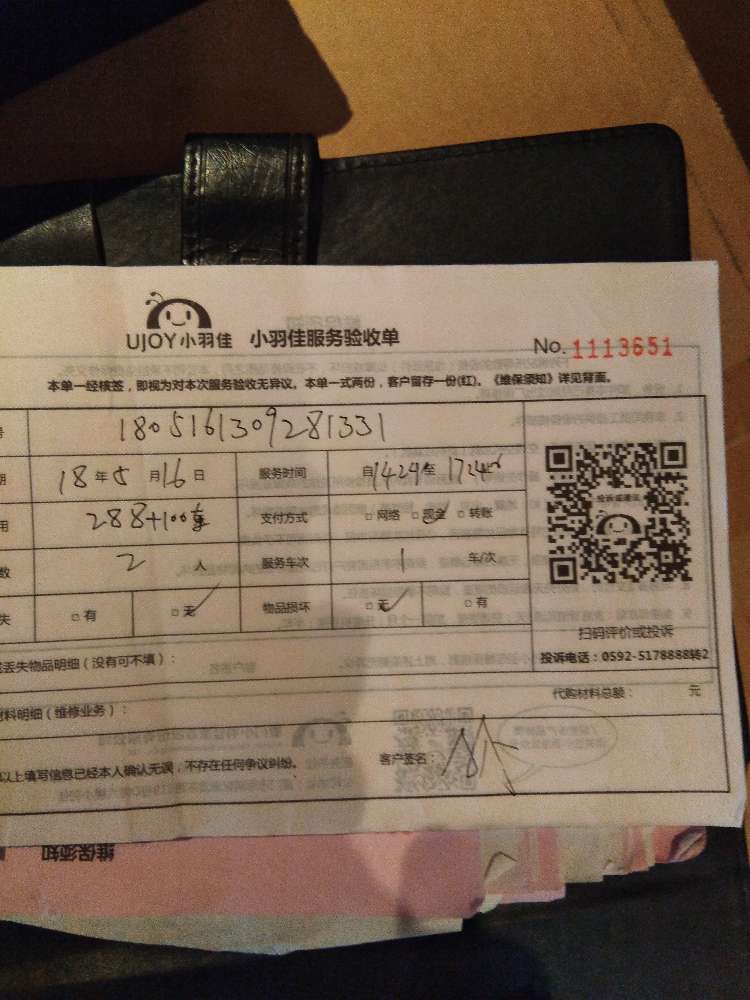 UJOY小羽佳 小羽佳服务验收单 No. 1113651
本单一经核签,即视为对本次服务验收无异议。本单一式两份,客户留存一份(红)。《维保须知》详见背面。
号 1805161309281331
期 18年5月16日 服务时间 自1429至1724
用 288+100 支付方式 □网络 □现金 □转账
数 2 人 服务车次 1 车/次
失 □有 □无 物品损坏 □无 □有
投诉或建议
扫码评价或投诉
投诉电话:0592-5178888转2
丢失物品明细(没有可不填):
代购材料总额: 元
材料明细(维修业务):
以上填写信息已经本人确认无误,不存在任何争议纠纷。 客户签名:
维保须知